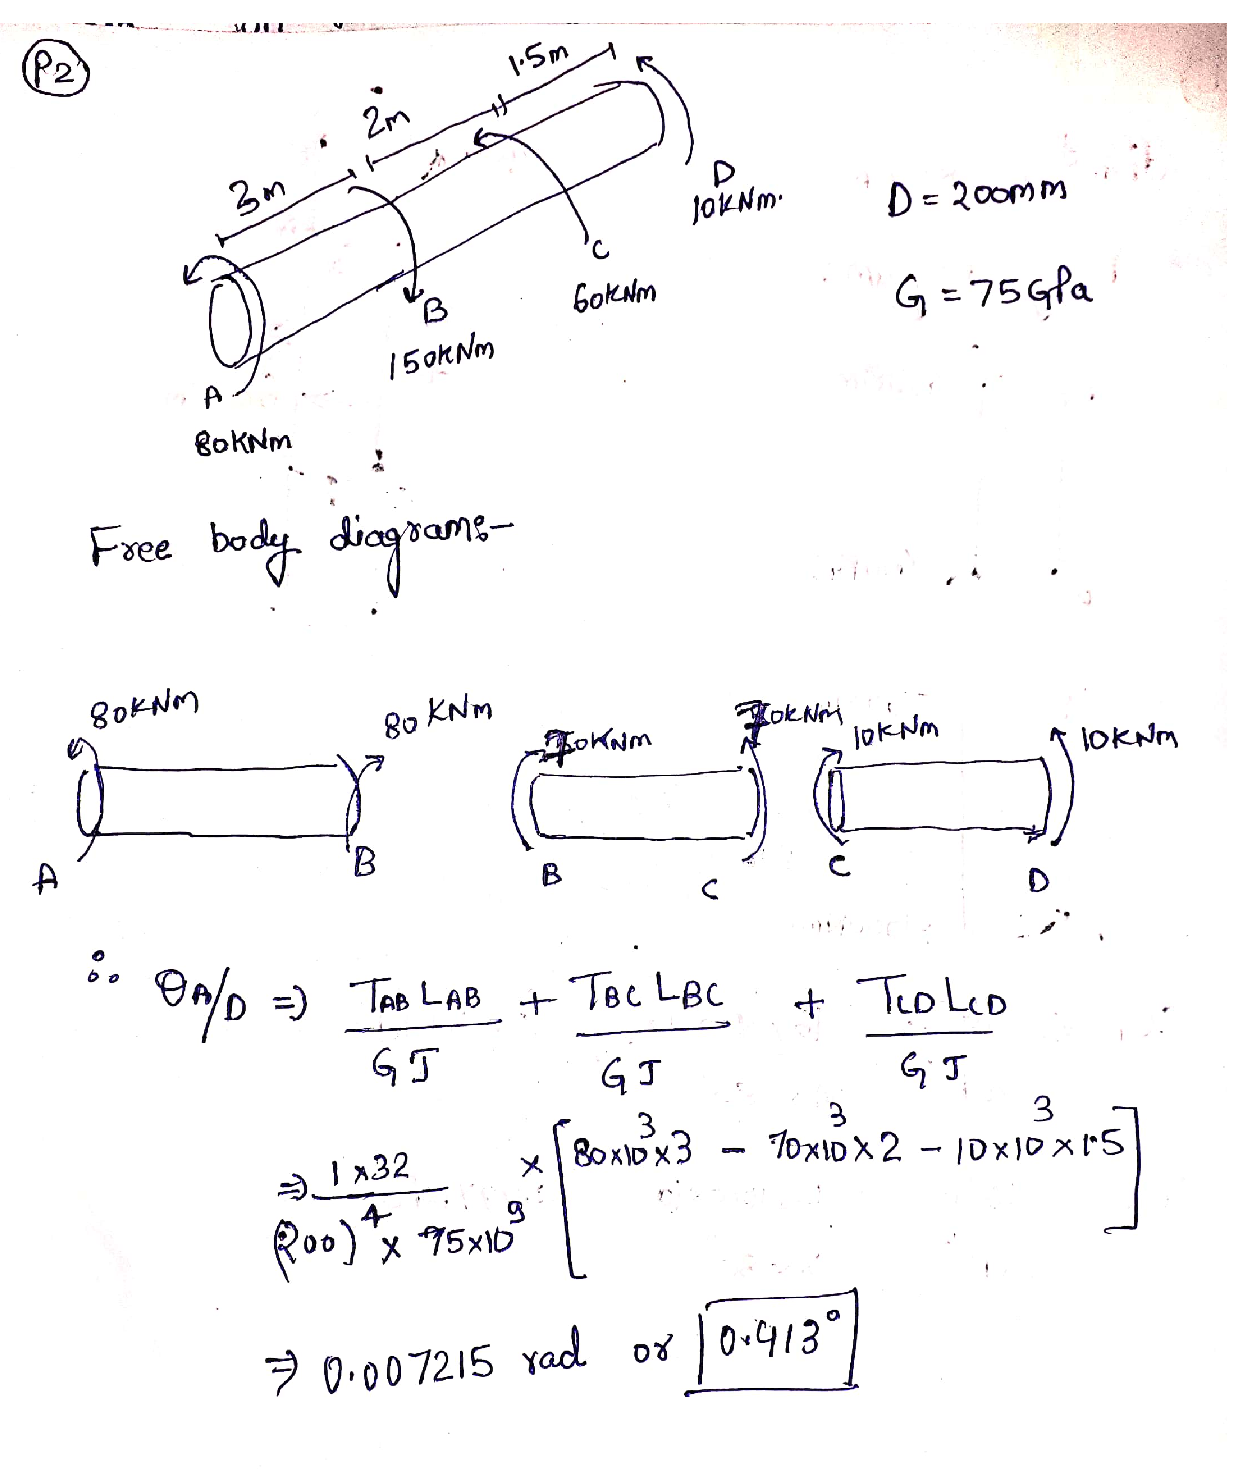 P2
1.5m
2m
3m
D
10KNm.
D = 200mm
C
60KNm
G = 75 GPa
B
150KNm
A
80KNm
Free body diagrams-
80KNm
80 KNm
70KNm
70KNm
10KNm
10KNm
A
B
B
C
C
D
∴ θA/D ⇒ TAB LAB / GJ + TBC LBC / GJ + TCD LCD / GJ
⇒ 1×32 / (200)^4 × 75×10^9 × [80×10^3×3 − 70×10^3×2 − 10×10^3×1.5]
⇒ 0.007215 rad or 0.413°